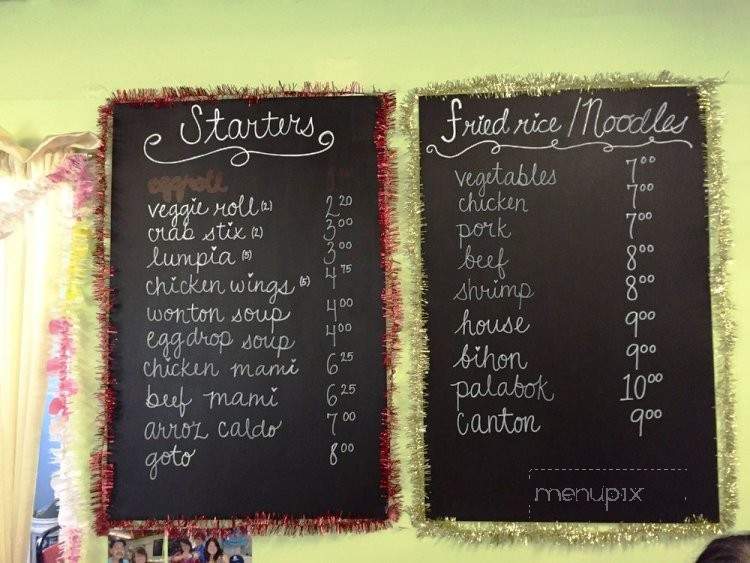 Starters
eggroll
veggie roll (2) 2.20
crab stix (2) 3.00
lumpia (5) 3.00
chicken wings (5) 4.75
wonton soup 4.00
eggdrop soup 4.00
chicken mami 6.25
beef mami 6.25
arroz caldo 7.00
goto 8.00
fried rice / Noodles
vegetables 7.00
chicken 7.00
pork 7.00
beef 8.00
shrimp 8.00
house 9.00
bihon 9.00
palabok 10.00
canton 9.00
menupix